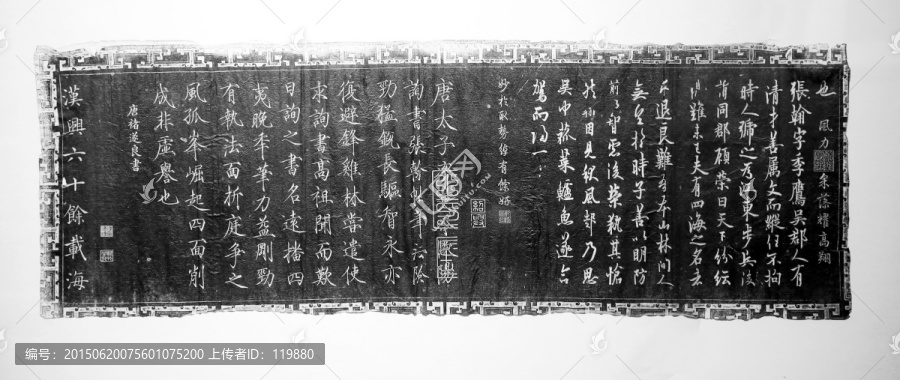 也 風力 矣蔭檣高翔
張翰字季鷹吳郡人有
清才善屬文而縱任不拘
時人號之為江東步兵後
首同郡顧榮曰天下紛紜
難未已夫有四海之名者
求退良難吾本山林間人
無望於時子善以明防
前以智慮後榮執其
翰因見秋風起乃思
吳中菰菜鱸魚遂
駕而
妙於取勢綽有餘妍
唐太子
詢書張翰
勁險刻長驅智永亦
復避鋒雞林嘗遣使
求詢書高祖聞而歎
曰詢之書名遠播四
夷晚年筆力益剛勁
有執法面折庭爭之
風孤峯崛起四面削
成非虛譽也
唐褚遂良書
漢興六十餘載海
编号：20150620075601075200 上传者ID：119880
摄图网